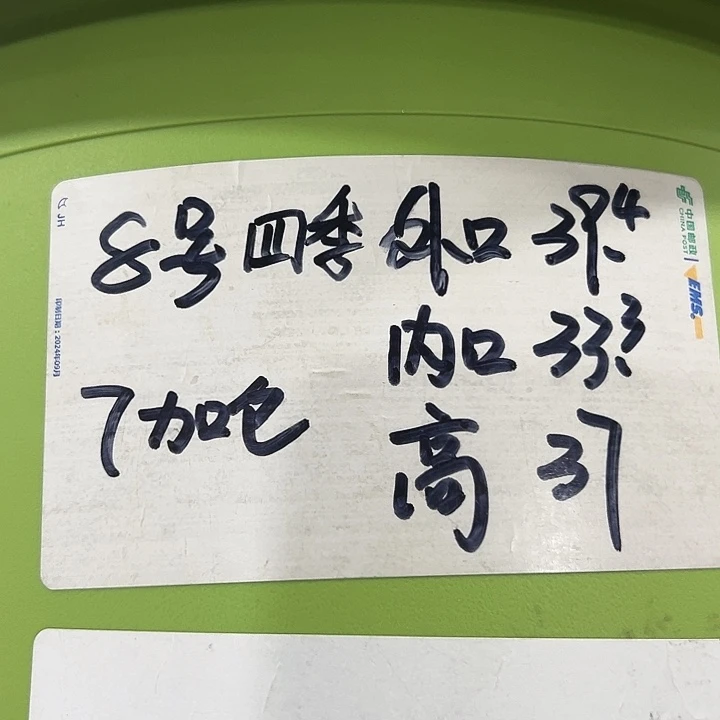 8号 四季 外口 39.4
内口 33.3
7加仑
高 37
JH
印制日期:2024年09月
中国邮政
CHINA POST
EMS